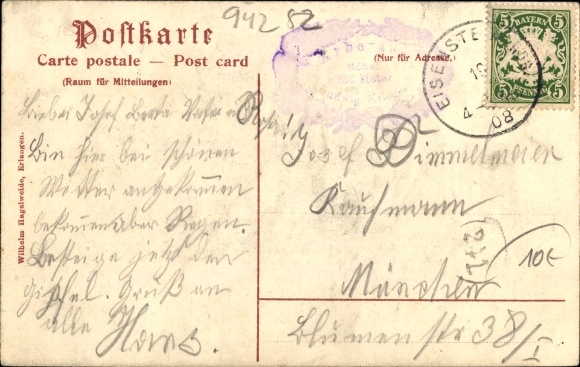 942 82
Postkarte
Carte postale — Post card
(Raum für Mitteilungen)
(Nur für Adresse.)
EISENSTE
08
BAYERN
5 5
5 PFENNIG 5
Wilhelm Hagelweide, Erlangen.
Lieber Josef Berta Vater u Rosa!
Bin hier bei schönem
Wetter angekommen
bekommen aber Regen.
Besteige jetzt den
Gipfel. Gruß an
alle Hans.
Josef Dimmelmeier
Kaufmann
München
Blumenstr 38/I
10€